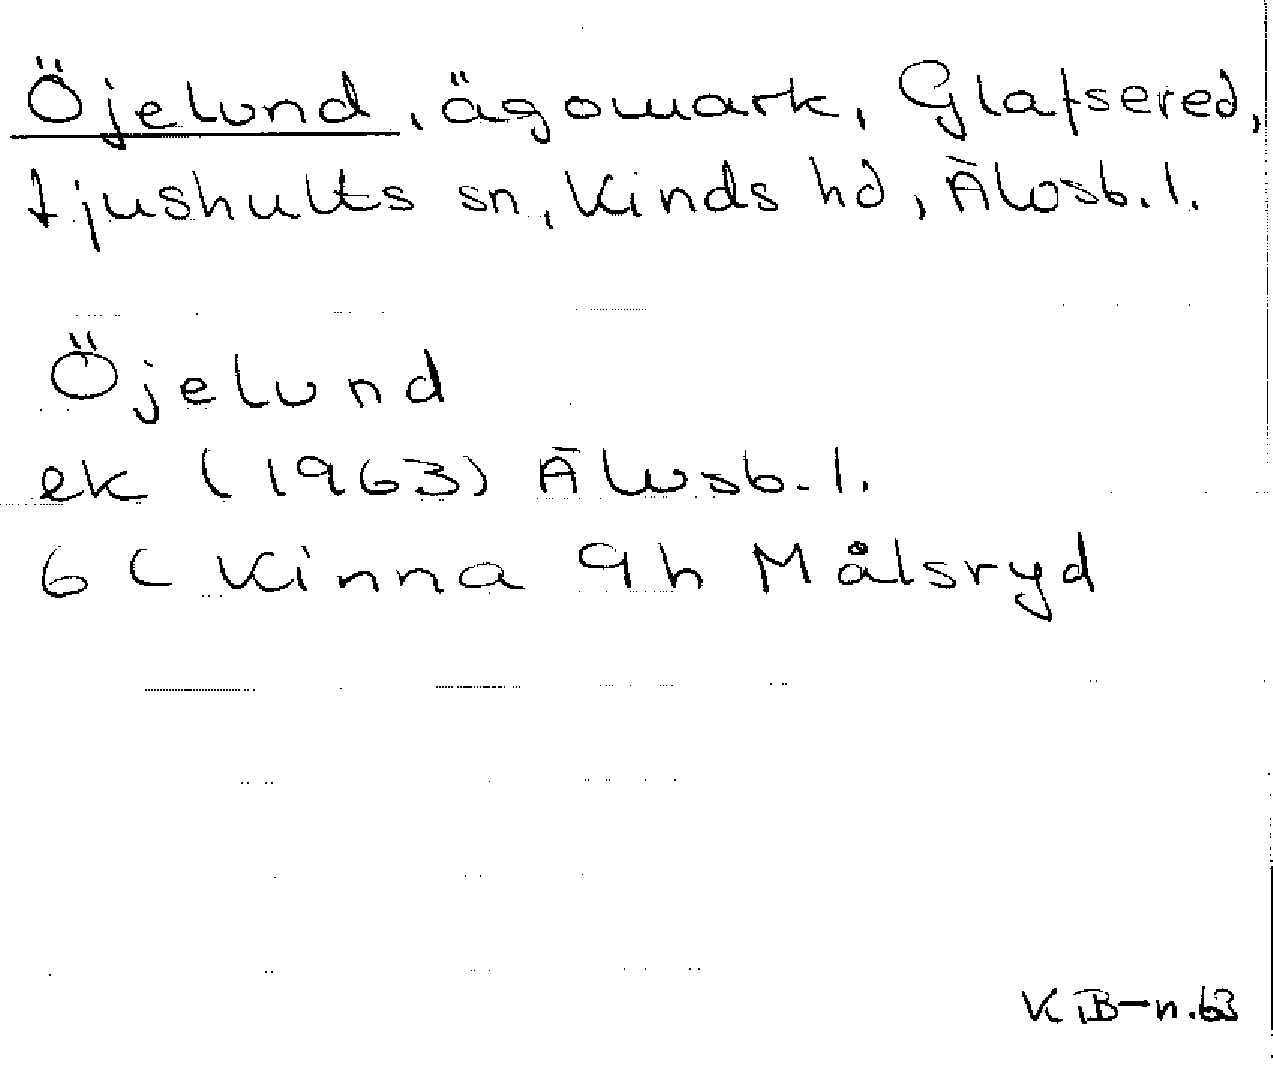 Öjelund, ägomark, Glafsered,
Ljushults sn, Kinds hd, Älvsb. l.
Öjelund
ek (1963) Älvsb. l.
6 C Kinna 9h Målsryd
K B-n. 63